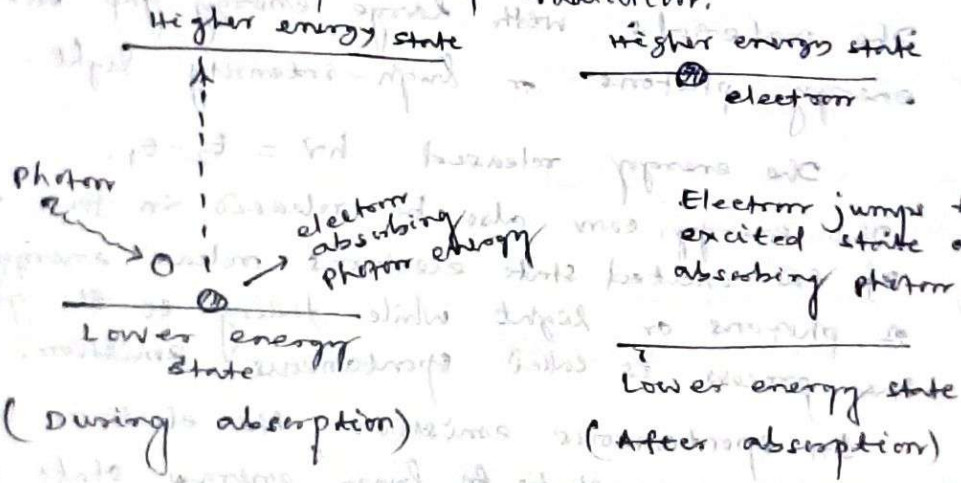 radiation.
Higher energy state
Photon
electron
absorbing
photon energy
Lower energy
state
(During absorption)
Higher energy state
electron
Electron jumps
excited state
absorbing photon
Lower energy state
(After absorption)